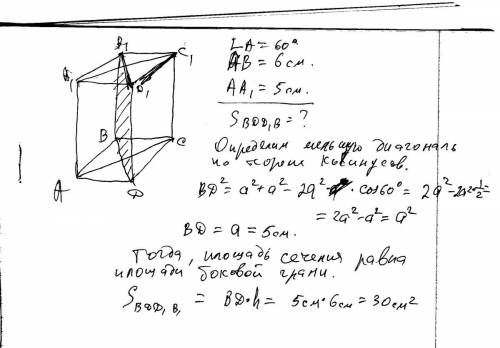 ∠A = 60°
AB = 6 см.
AA₁ = 5 см.
S_BDD₁B₁ = ?
Определим меньшую диагональ
по теореме косинусов.
BD² = a² + a² - 2a² · cos60° = 2a² - 2a² · 1/2 =
= 2a² - a² = a²
BD = a = 5 см.
Тогда, площадь сечения равна
площади боковой грани.
S_BDD₁B₁ = BD · h = 5 см · 6 см = 30 см²
B₁
C₁
A₁
D₁
B
C
A
D